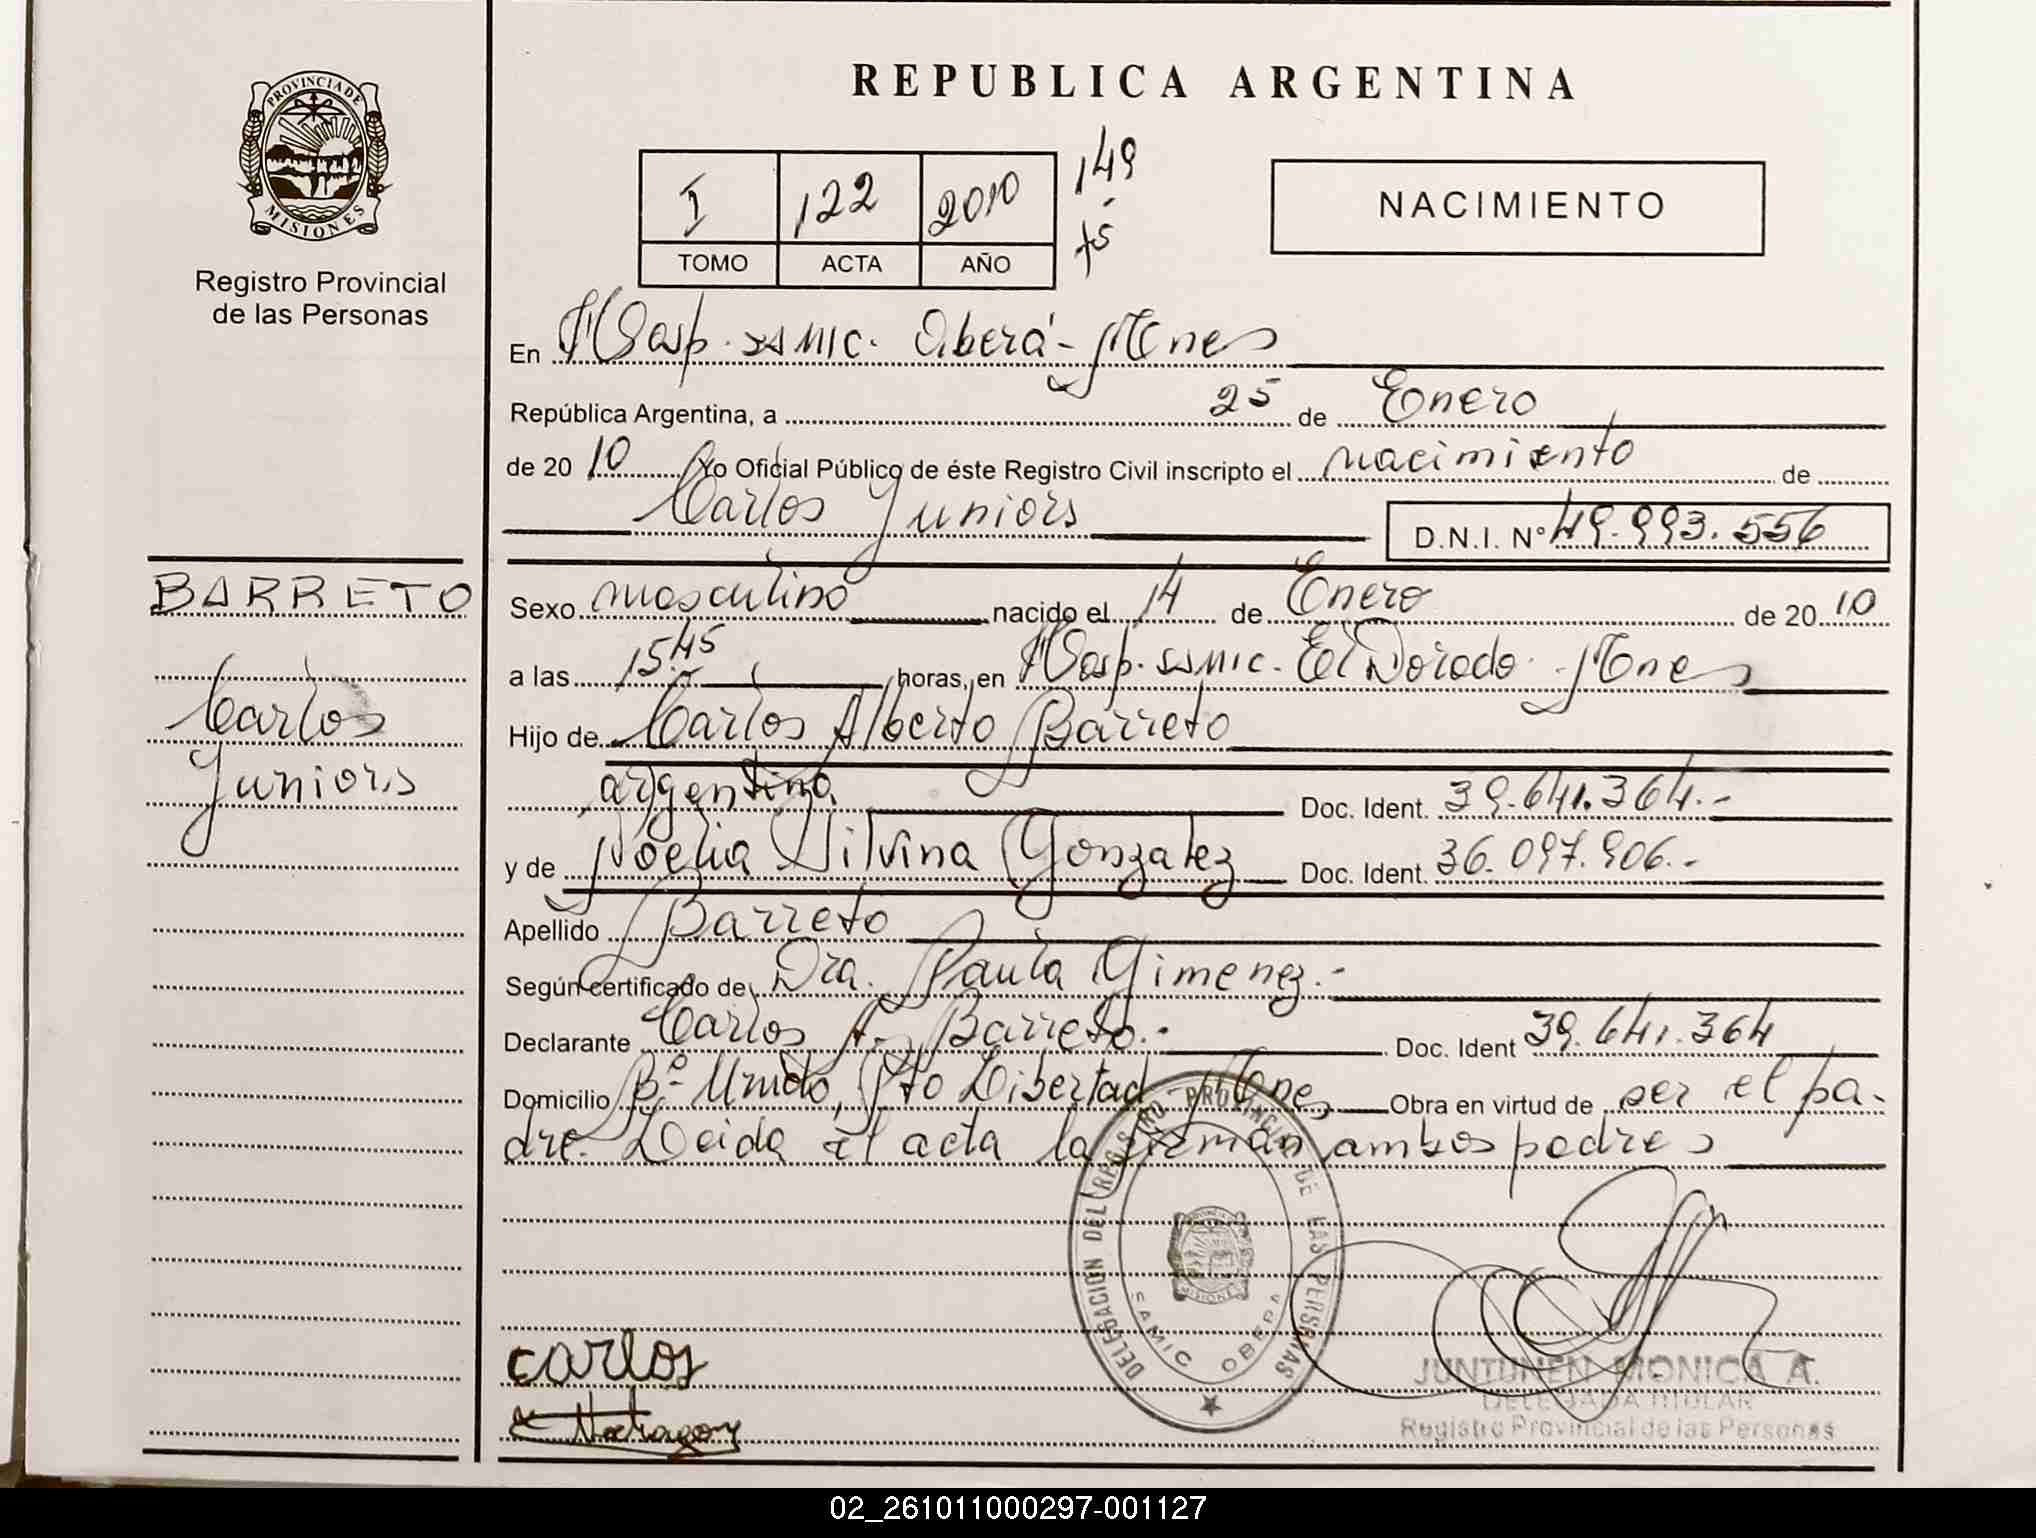 REPUBLICA ARGENTINA
PROVINCIA DE
MISIONES
Registro Provincial
de las Personas
I 122 2010 149
TOMO ACTA AÑO
NACIMIENTO
En Hosp. SAMIC. Oberá - Mnes
República Argentina, a 25 de Enero
de 2010 Yo Oficial Público de éste Registro Civil inscripto el nacimiento de
Carlos Juniors D.N.I. N° 49.993.556
BARRETO
Carlos
Juniors
Sexo masculino nacido el 14 de Enero de 2010
a las 15.45 horas, en Hosp. SAMIC. El Dorado - Mnes
Hijo de Carlos Alberto Barreto
argentino Doc. Ident. 39.641.364.-
y de Noelia Silvina Gonzalez Doc. Ident. 36.097.906.-
Apellido Barreto
Según certificado de Dra. Paula Gimenez.-
Declarante Carlos A. Barreto.- Doc. Ident 39.641.364
Domicilio B° Unido, Pto Libertad Mnes Obra en virtud de ser el pa-
dre. Leida el acta la firman ambos padres
DELEGACION DEL REGISTRO PROVINCIAL DE LAS PERSONAS
SAMIC OBERA
MISIONES
carlos
JUNTUNEN MONICA A.
DELEGADA TITULAR
Registro Provincial de las Personas
02_261011000297-001127